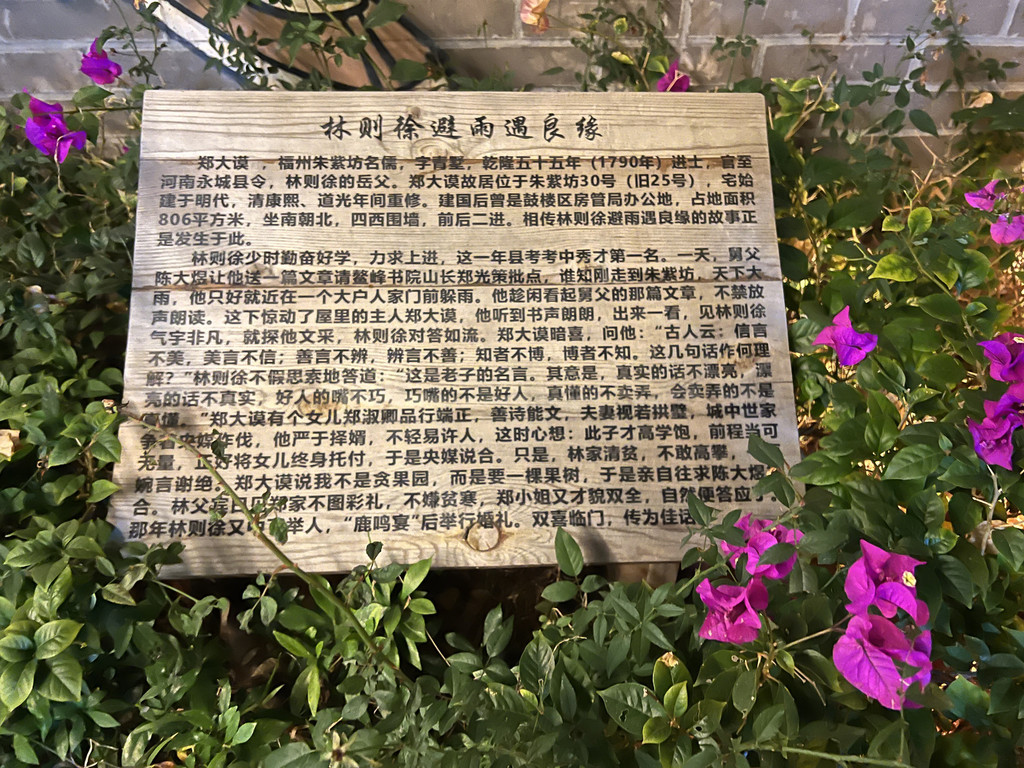 林则徐避雨遇良缘
郑大谟 ，福州朱紫坊名儒，字青墅，乾隆五十五年（1790年）进士，官至
河南永城县令，林则徐的岳父。郑大谟故居位于朱紫坊30号（旧25号），宅始
建于明代，清康熙、道光年间重修。建国后曾是鼓楼区房管局办公地，占地面积
806平方米，坐南朝北，四西围墙，前后二进。相传林则徐避雨遇良缘的故事正
是发生于此。
林则徐少时勤奋好学，力求上进，这一年县考考中秀才第一名。一天，舅父
陈大煜让他送一篇文章请鳌峰书院山长郑光策批点，谁知刚走到朱紫坊，天下大
雨，他只好就近在一个大户人家门前躲雨。他趁闲看起舅父的那篇文章，不禁放
声朗读。这下惊动了屋里的主人郑大谟，他听到书声朗朗，出来一看，见林则徐
气宇非凡，就探他文采，林则徐对答如流。郑大谟暗喜，问他：“古人云：信言
不美，美言不信；善言不辨，辨言不善；知者不博，博者不知。这几句话作何理
解？”林则徐不假思索地答道：“这是老子的名言。其意是，真实的话不漂亮，漂
亮的话不真实，好人的嘴不巧，巧嘴的不是好人，真懂的不卖弄，会卖弄的不是
真懂。”郑大谟有个女儿郑淑卿品行端正，善诗能文，夫妻视若拱璧，城中世家
争着央媒作伐，他严于择婿，不轻易许人，这时心想：此子才高学饱，前程当可
无量，正好将女儿终身托付，于是央媒说合。只是，林家清贫，不敢高攀，
婉言谢绝。郑大谟说我不是贪果园，而是要一棵果树，于是亲自往求陈大煜
合。林父宾日见郑家不图彩礼，不嫌贫寒，郑小姐又才貌双全，自然便答应了
那年林则徐又 举人，“鹿鸣宴”后举行婚礼。双喜临门，传为佳话